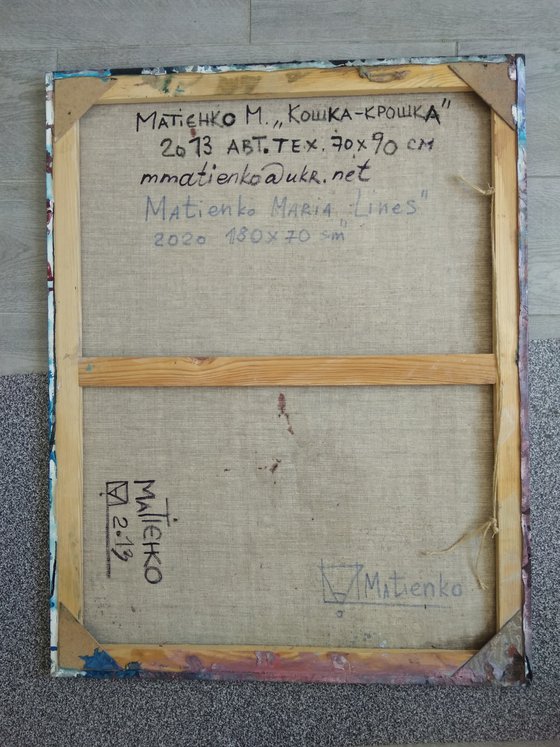 Матієнко М. „Кошка-крошка"
2013 авт. тех. 70х90 см
mmatienko@ukr.net
Matienko Maria „Lines"
2020 130x70 sm
Матієнко
2013
Matienko